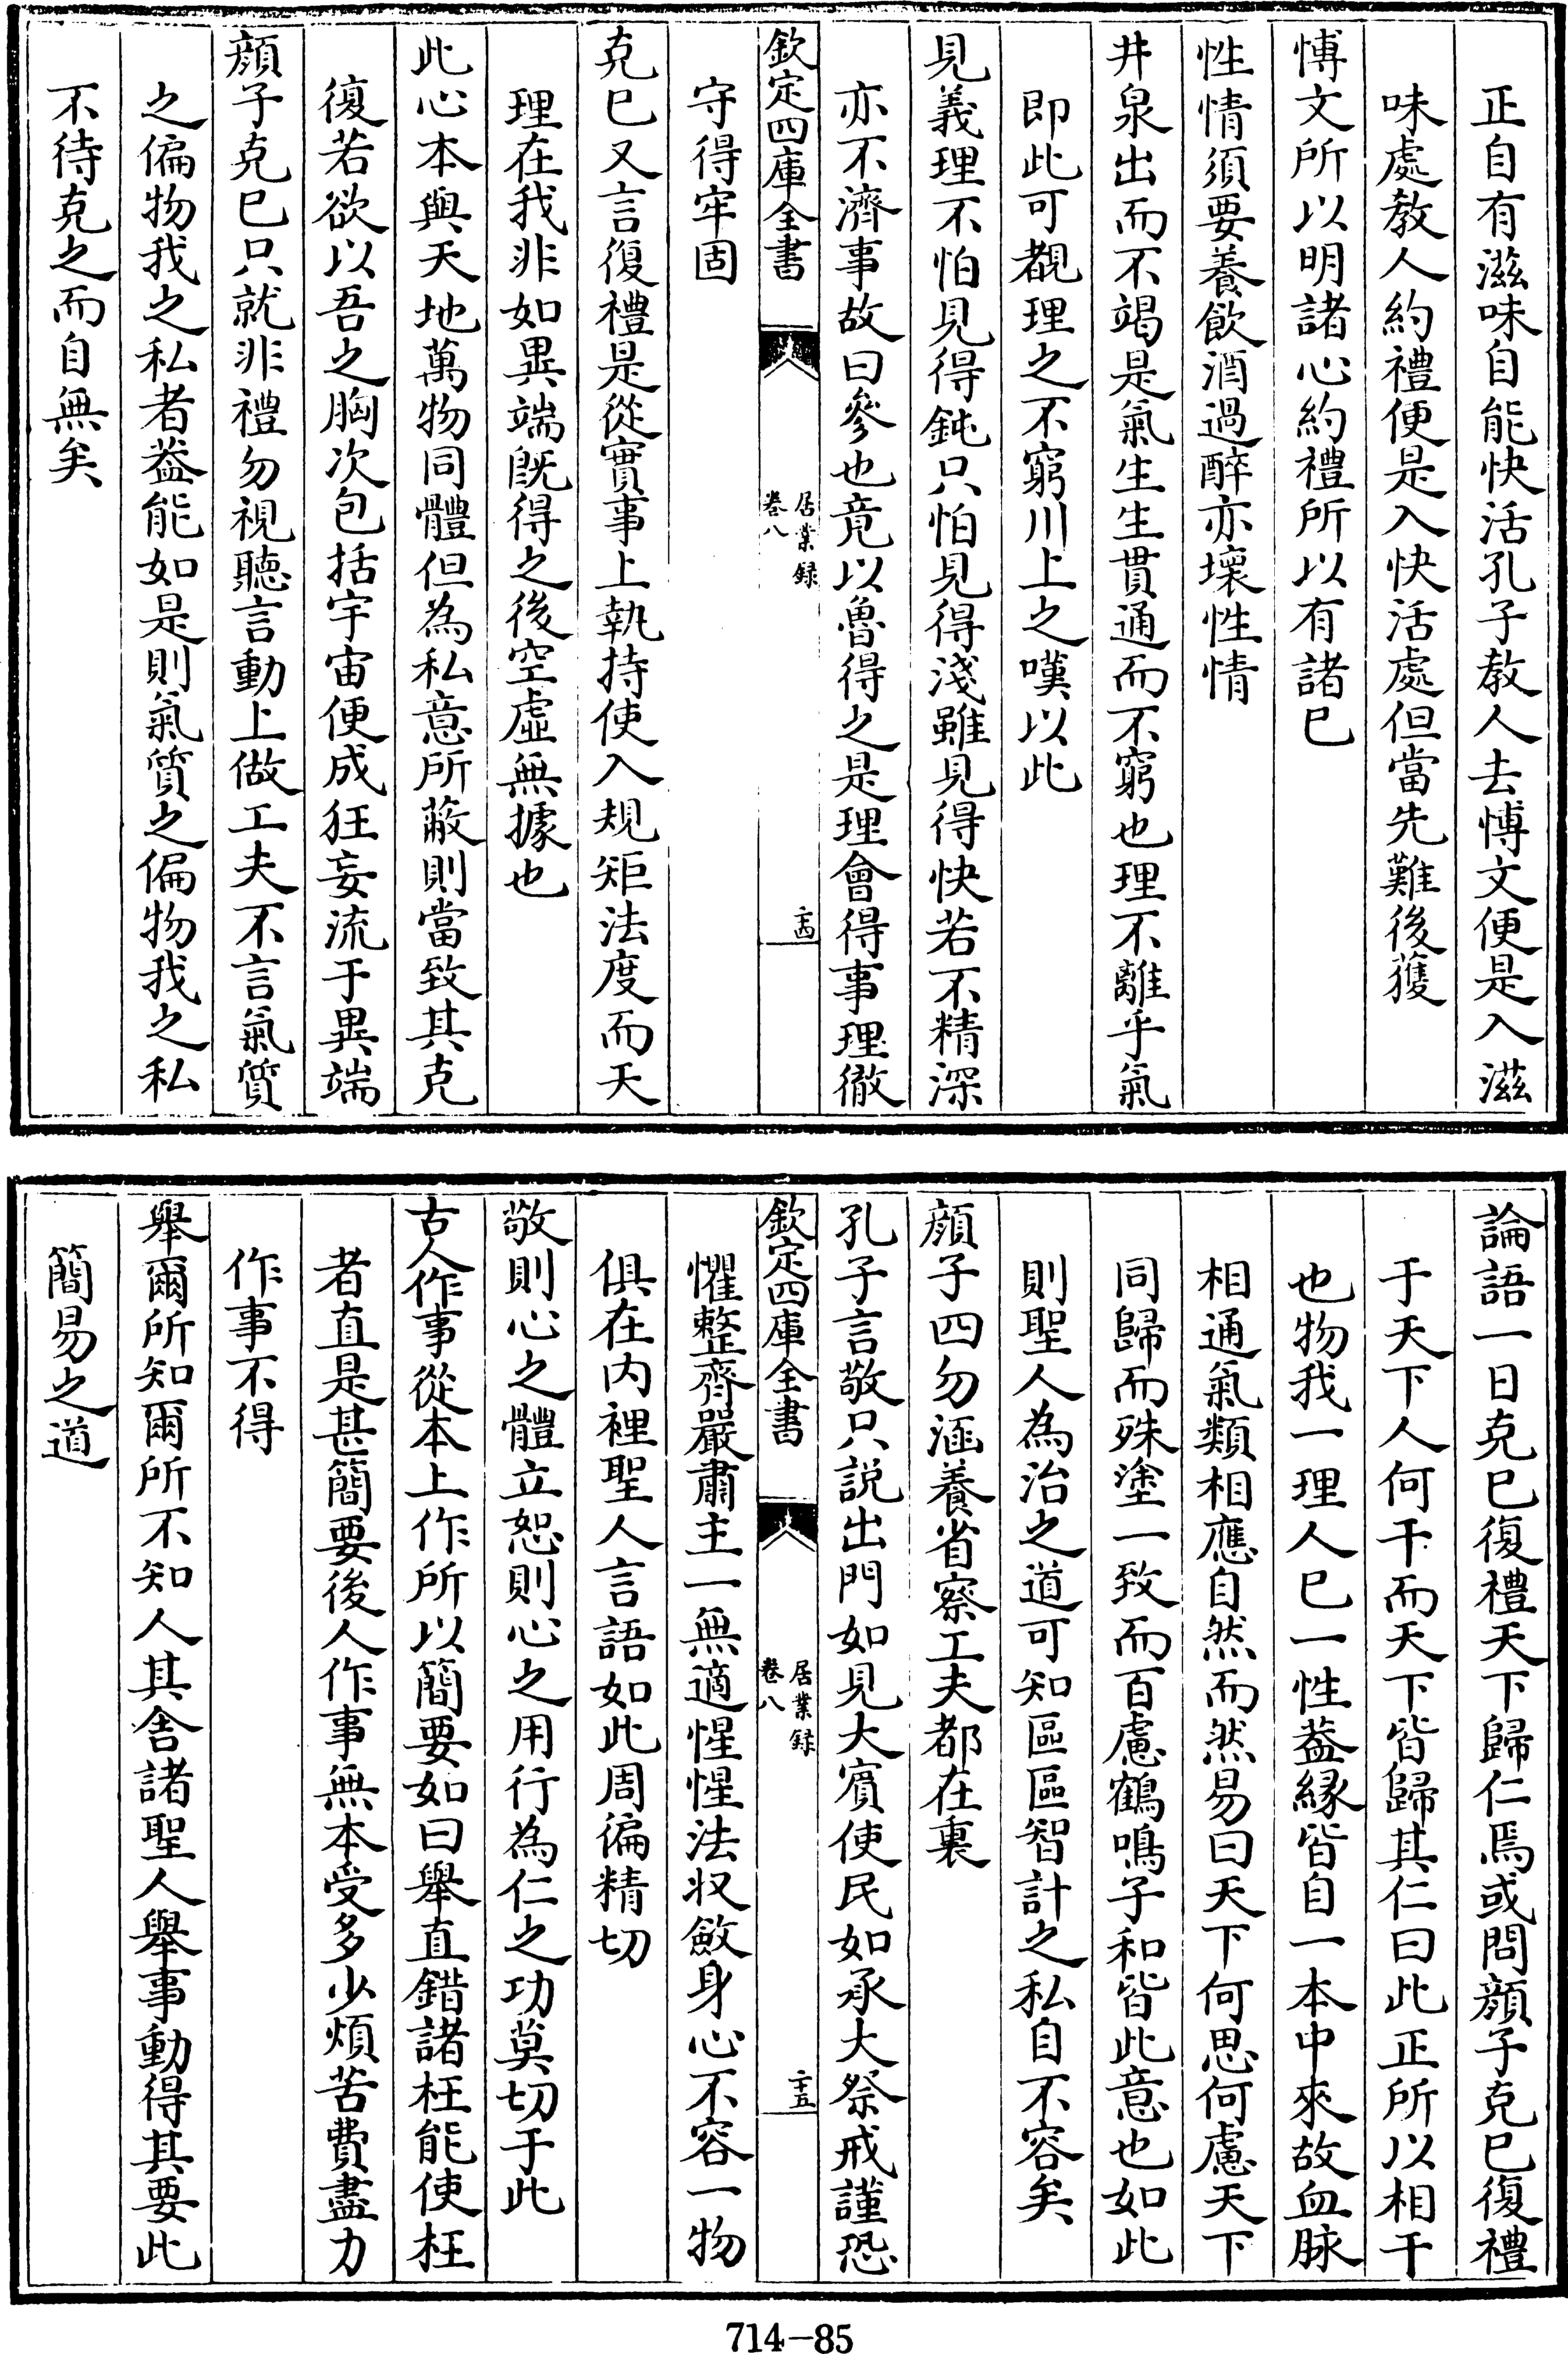 正自有滋味自能快活孔子教人去博文便是入滋
味處教人約禮便是入快活處但當先難後獲
博文所以明諸心約禮所以有諸已
性情須要養飲酒過醉亦壞性情
井泉出而不竭是氣生生貫通而不窮也理不離乎氣
即此可覩理之不窮川上之嘆以此
見義理不怕見得鈍只怕見得淺雖見得快若不精深
亦不濟事故曰參也竟以魯得之是理會得事理徹
欽定四庫全書
居業録
卷八
二十四
守得牢固
克已又言復禮是從實事上執持使入規矩法度而天
理在我非如異端既得之後空虛無據也
此心本與天地萬物同體但為私意所蔽則當致其克
復若欲以吾之胸次包括宇宙便成狂妄流于異端
顔子克已只就非禮勿視聽言動上做工夫不言氣質
之偏物我之私者葢能如是則氣質之偏物我之私
不待克之而自無矣
論語一日克已復禮天下歸仁焉或問顔子克已復禮
于天下人何干而天下皆歸其仁曰此正所以相干
也物我一理人已一性葢緣皆自一本中來故血脉
相通氣類相應自然而然易曰天下何思何慮天下
同歸而殊塗一致而百慮鶴鳴子和皆此意也如此
則聖人為治之道可知區區智計之私自不容矣
顔子四勿涵養省察工夫都在裏
孔子言敬只説出門如見大賓使民如承大祭戒謹恐
欽定四庫全書
居業録
卷八
二十五
懼整齊嚴肅主一無適惺惺法収斂身心不容一物
俱在内裡聖人言語如此周徧精切
敬則心之體立恕則心之用行為仁之功莫切于此
古人作事從本上作所以簡要如曰舉直錯諸枉能使枉
者直是甚簡要後人作事無本受多少煩苦費盡力
作事不得
舉爾所知爾所不知人其舍諸聖人舉事動得其要此
簡易之道
714-85